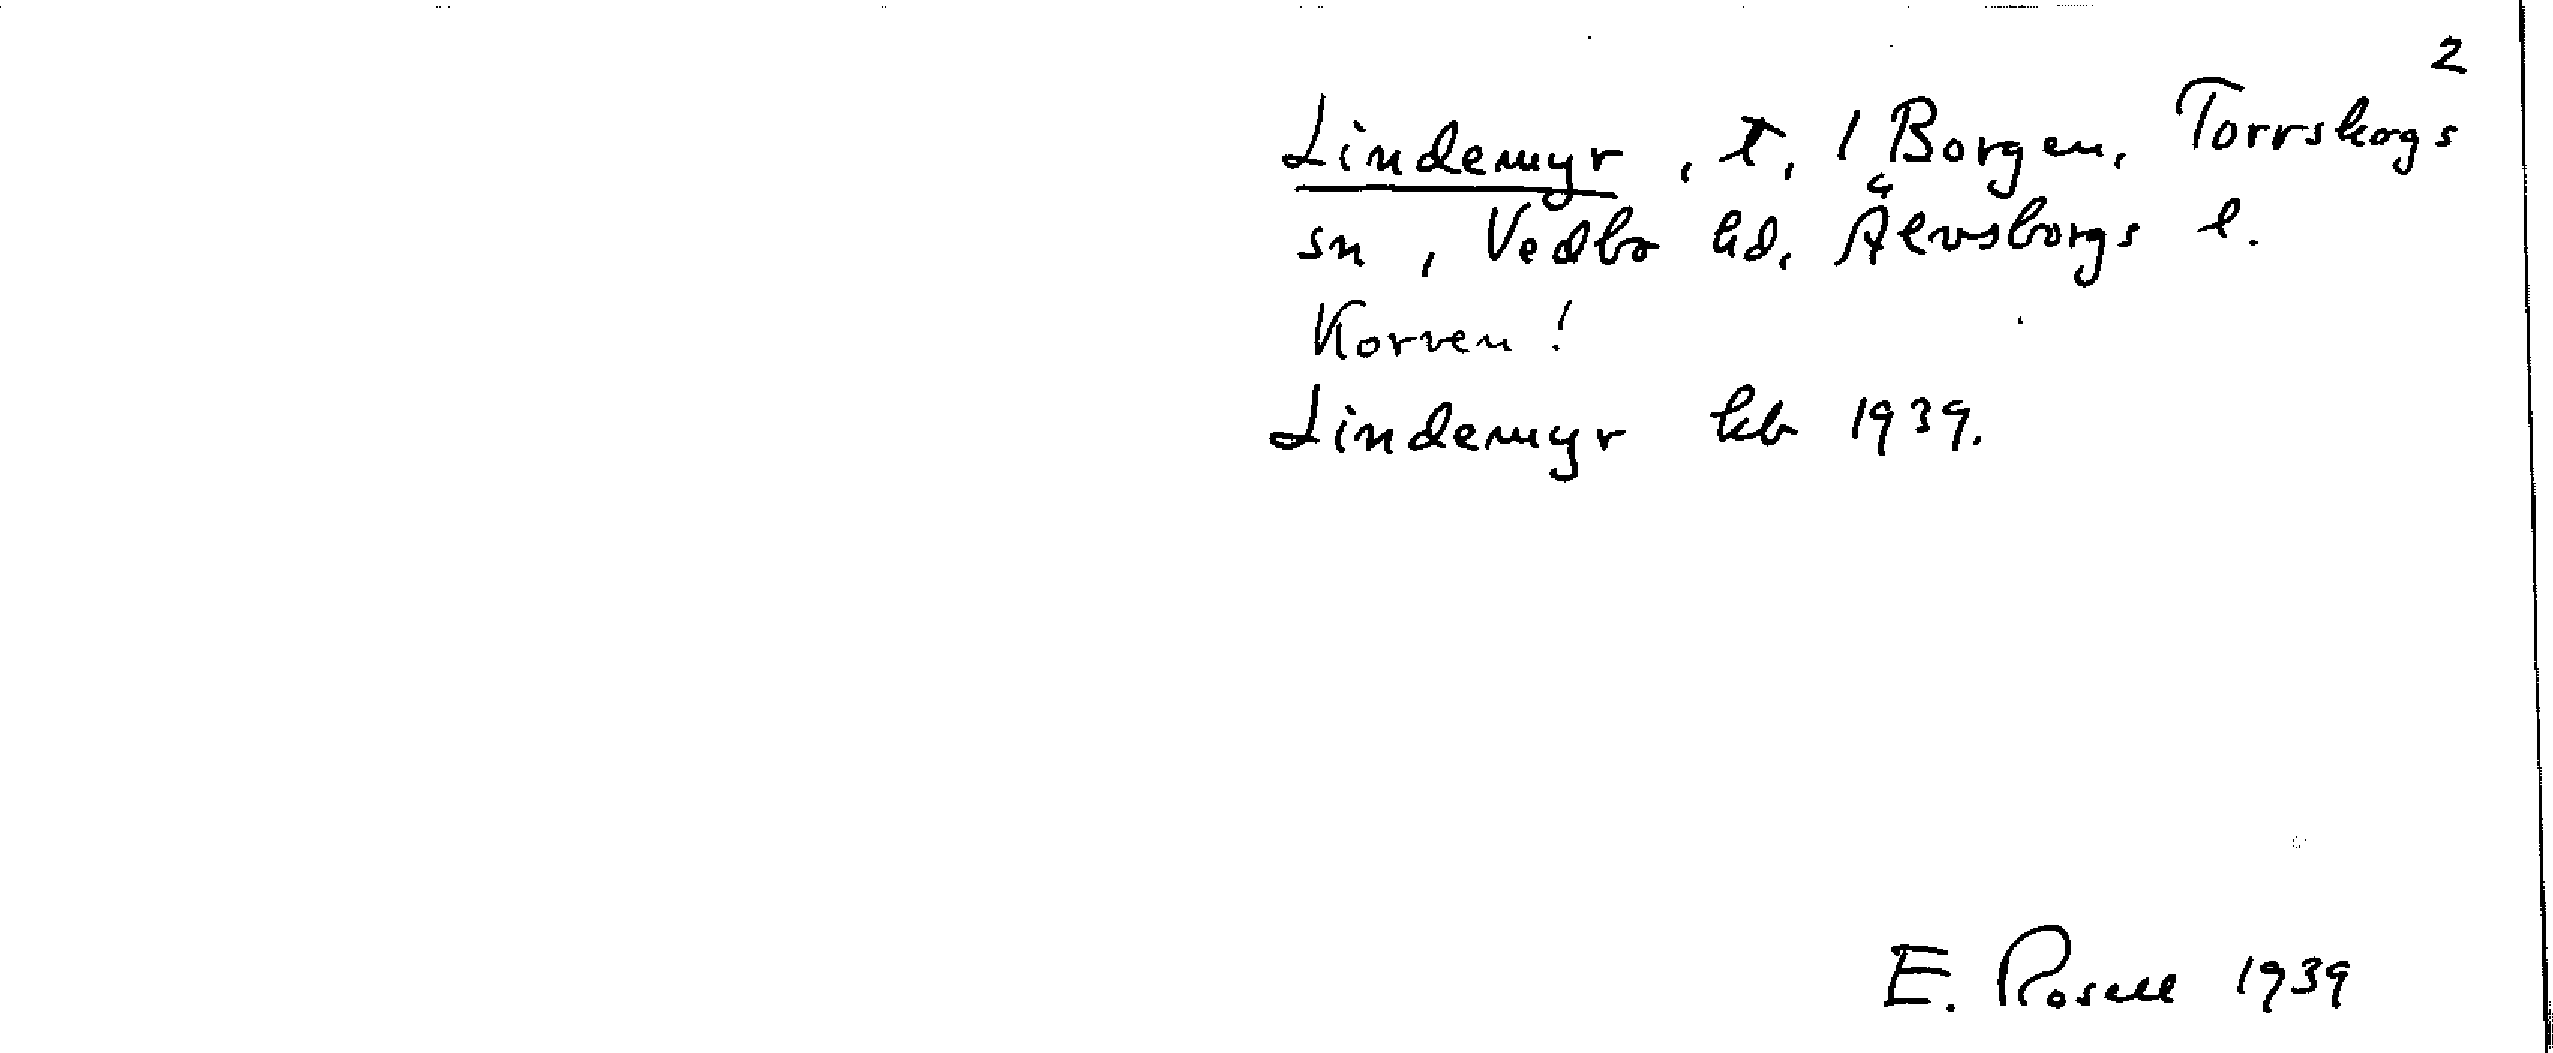 2
Lindemyr, t, / Borgen, Torrskogs
sn, Vedbo hd, Älvsborgs l.
Korven!
Lindemyr kb 1939.
E. Rosell 1939